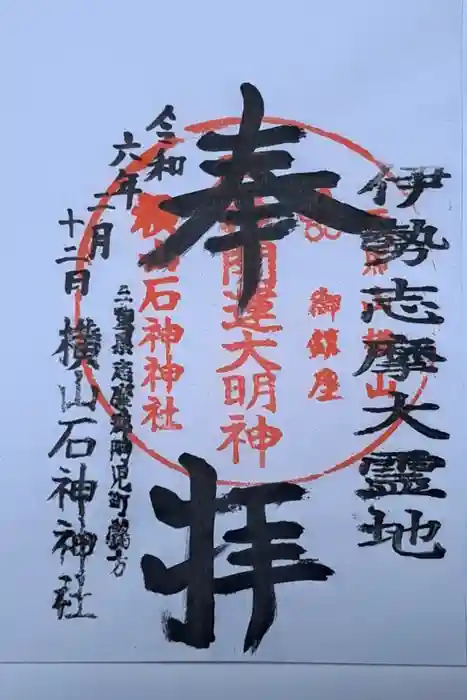 伊勢志摩大霊地
奉拝
横山
御鎮座
開運大明神
横山石神神社
令和六年二月十二日
三重県志摩郡阿児町鵜方
横山石神神社